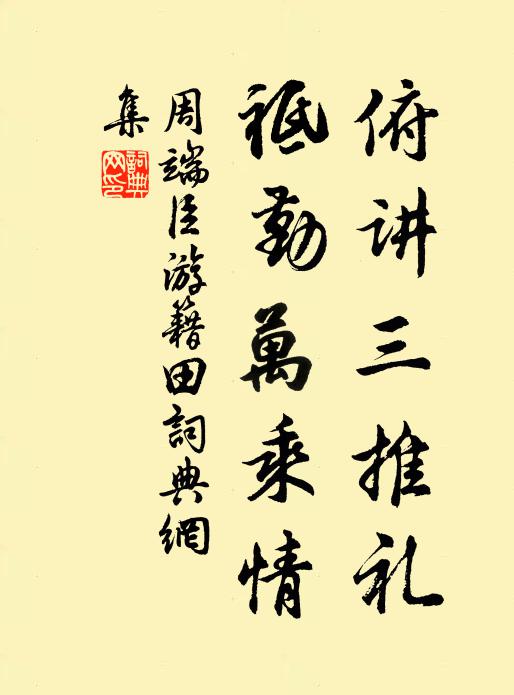 俯讲三推礼
祗勤萬乘情
周端臣游籍田詞典網
集
詞典
网印